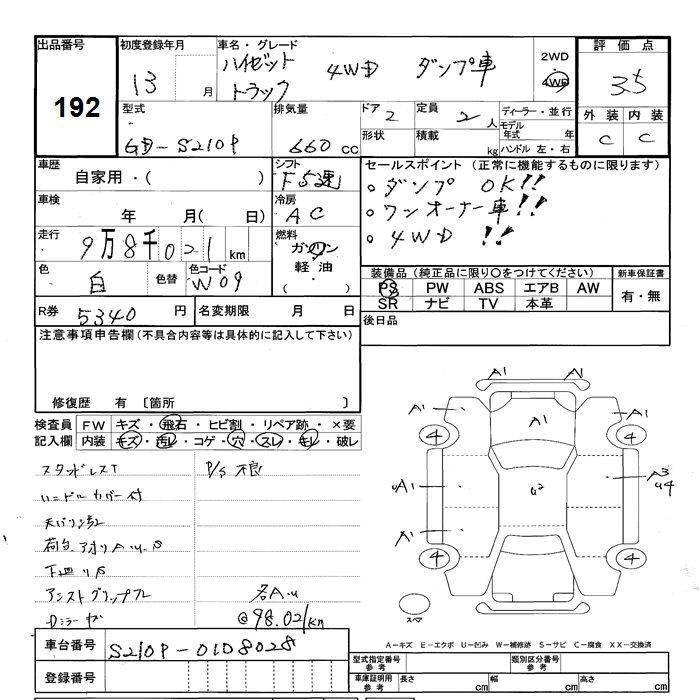 出品番号
192
初度登録年月
13 月
車名・グレード
ハイゼット
トラック
4WD ダンプ車
2WD
4WD
評価点
3.5
外装 内装
C C
型式
GD-S210P
排気量
660 cc
ドア 2
形状
定員 2 人
積載 kg
ディーラー・並行
モデル年式 年
ハンドル 左・右
車歴
自家用・( )
シフト
F5速
車検
年 月( 日)
冷房
AC
走行
9万8千021 km
燃料
ガソリン
軽油・
( )
色
白
色替
色コード
W09
R券
5340 円
名変期限 月 日
セールスポイント (正常に機能するものに限ります)
○ダンプ OK!!
○ワンオーナー車!!
○4WD !!
装備品(純正品に限り○をつけてください)
PS PW ABS エアB AW
SR ナビ TV 本革
新車保証書
有・無
後日品
注意事項申告欄(不具合内容等は具体的に記入して下さい)
修復歴 有 〔箇所 〕
検査員記入欄
FW キズ・飛石・ヒビ割・リペア跡・×要
内装 キズ・汚レ・コゲ・穴・スレ・キレ・破レ
スタッドレスT
P/S不良
ハンドルカバー付
荷台、アオリA.U.S
下廻りS
名A.u
@98.021km
車台番号
S210P-0108028
登録番号
A1 A1
A1 A1 A1
4 4
A1 U2 A3
U4
A1
4 4
スペア
A-キズ E-エクボ U-凹み W-補修跡 S-サビ C-腐食 XX-交換済
型式指定番号 参考
類別区分番号 参考
車庫証明用 参考
長さ cm 幅 cm 高さ cm